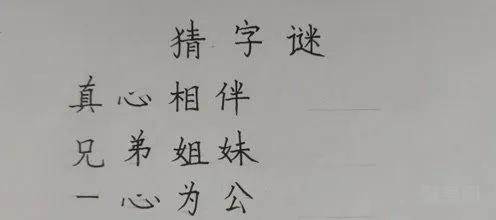 猜字谜
真心相伴
兄弟姐妹
一心为公